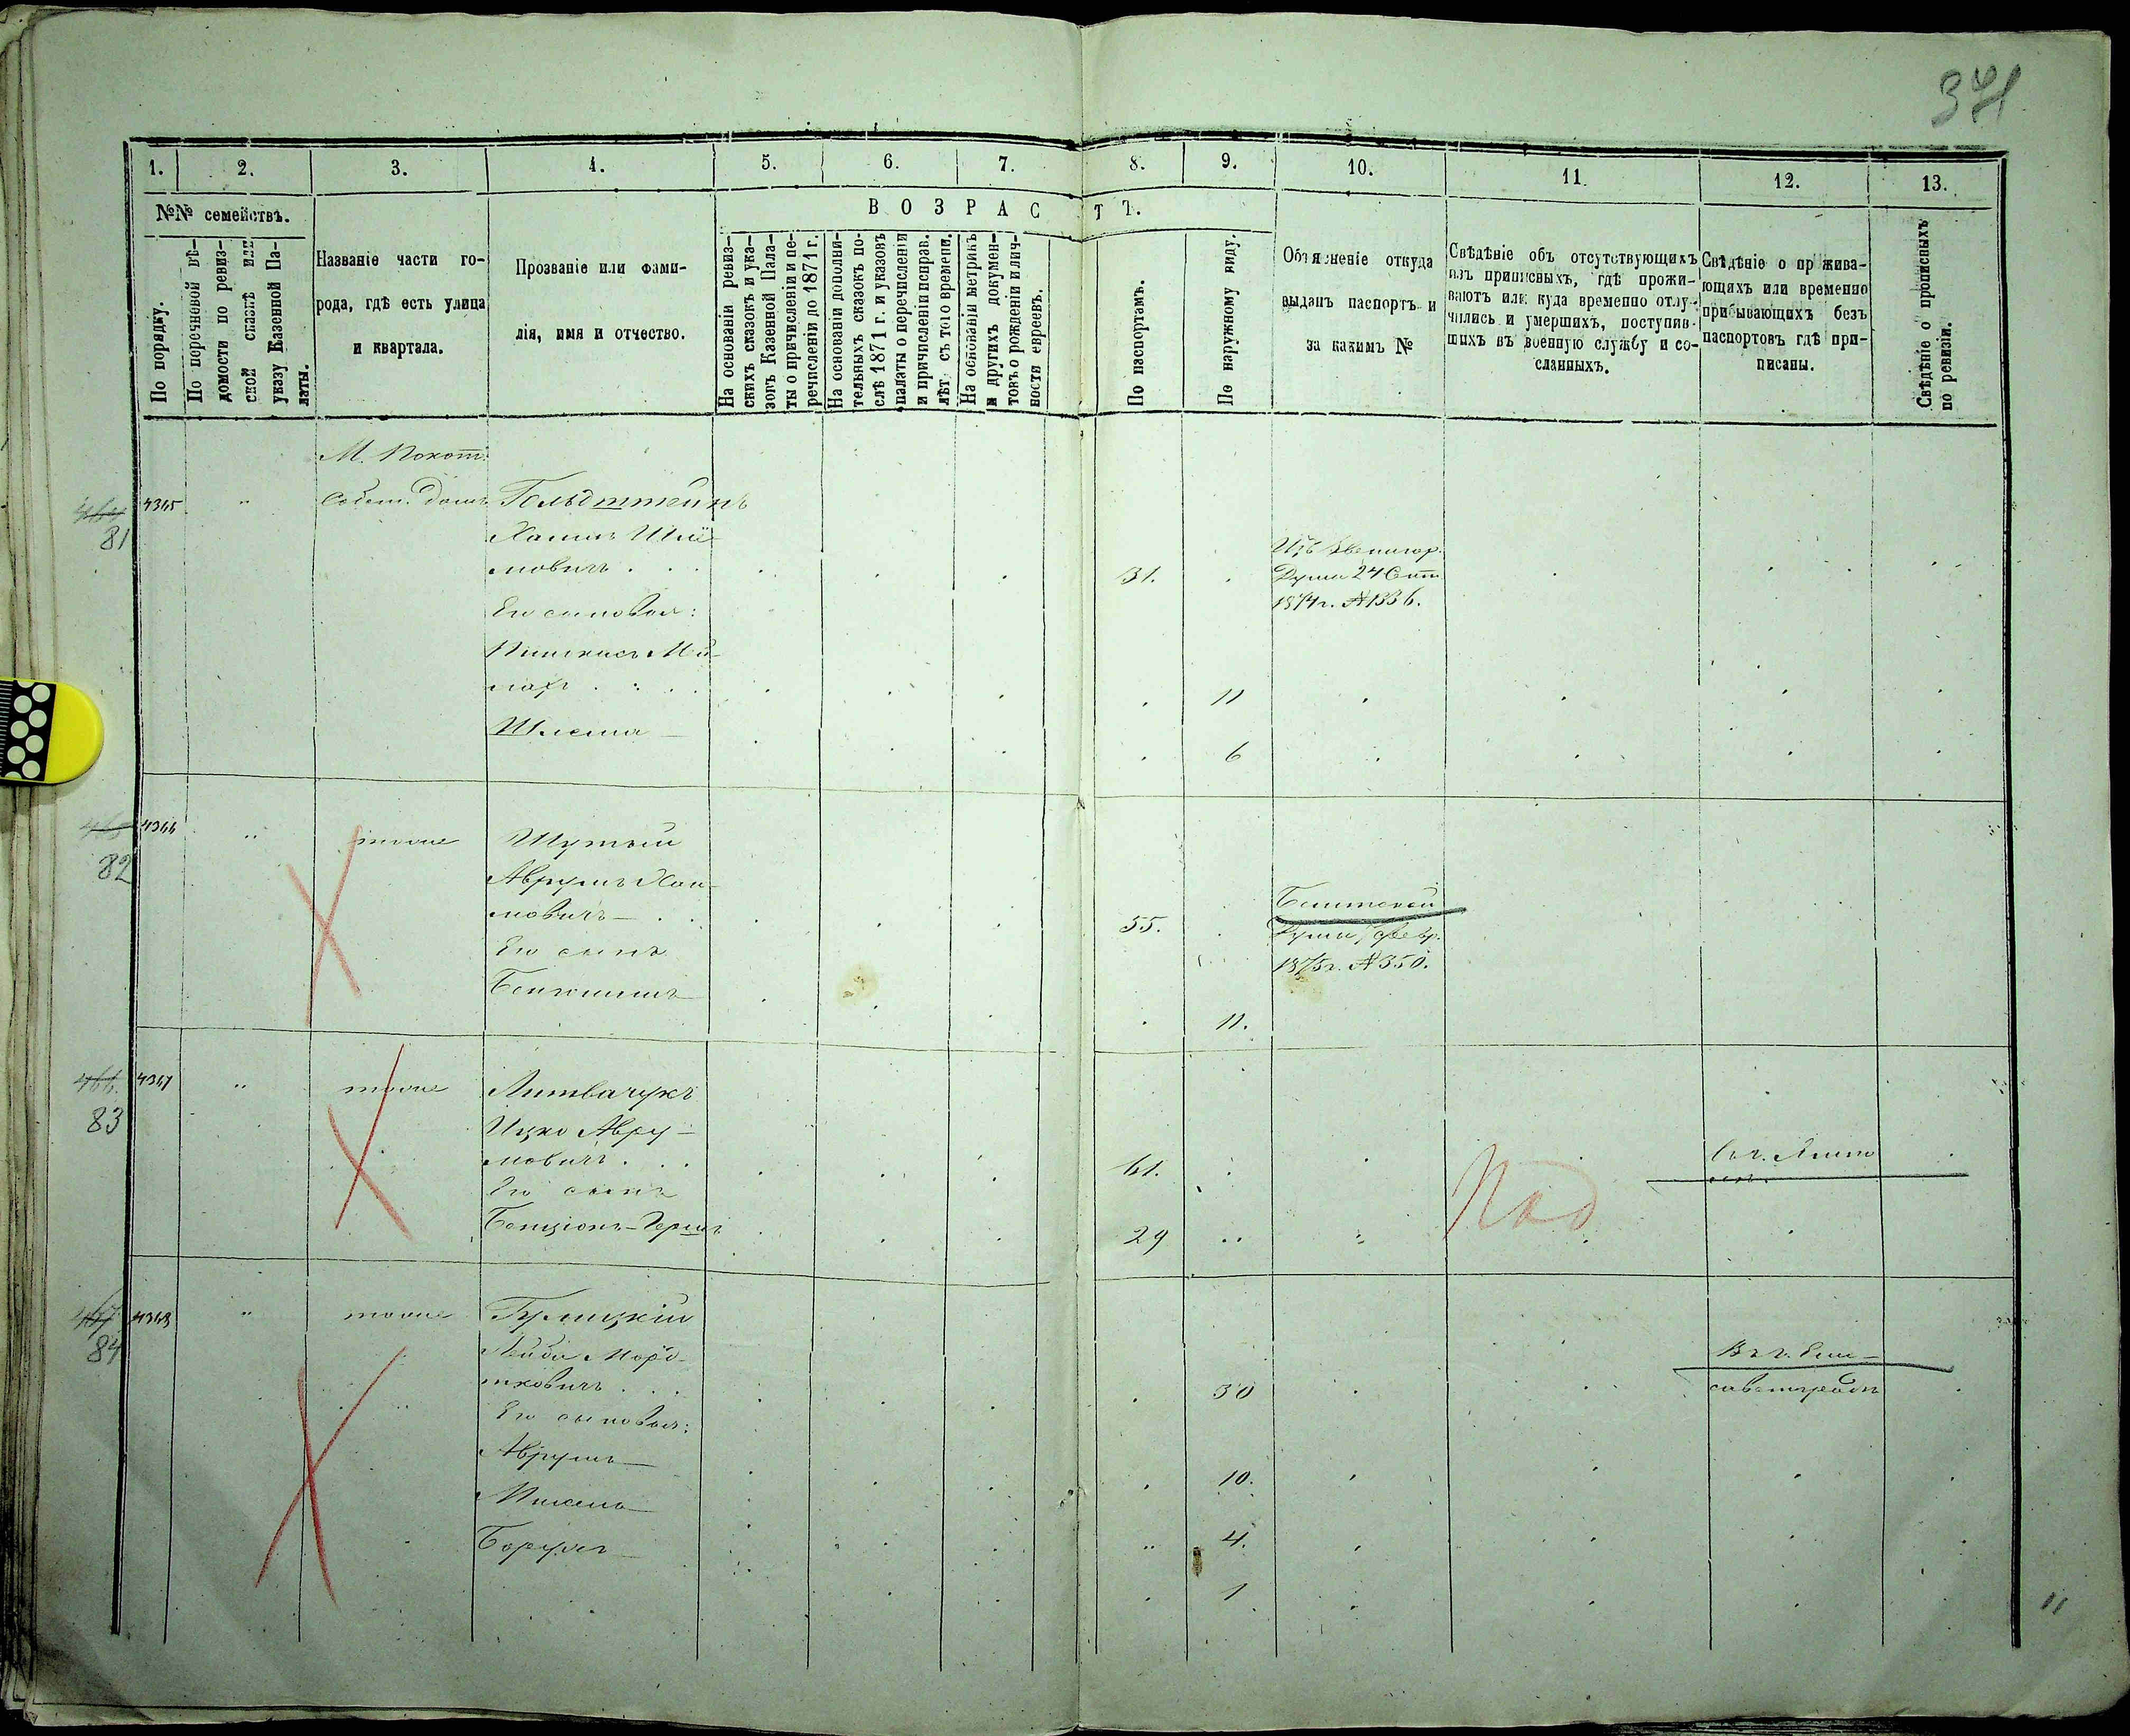 371
1. 2. 3. 4. 5. 6. 7. 8. 9. 10. 11. 12. 13.
№№ семействъ.
По порядку.
По перечневой вѣ-
домости по ревиз-
ской сказкѣ или
указу Казенной Па-
латы.
Названіе части го-
рода, гдѣ есть улица
и квартала.
Прозваніе или фами-
лія, имя и отчество.
ВОЗРАСТЪ.
На основаніи ревиз-
скихъ сказокъ и ука-
зовъ Казенной Пала-
ты о причисленіи и пе-
речисленіи до 1871 г.
На основаніи дополни-
тельныхъ сказокъ по-
слѣ 1871 г. и указовъ
палаты о перечисленіи
и причисленіи исправ.
лѣт. съ того времени.
На основаніи метрикъ
и другихъ докумен-
товъ о рожденіи и лич-
ности евреевъ.
По паспортамъ.
По наружному виду.
Объясненіе откуда
выданъ паспортъ и
за какимъ №
Свѣдѣніе объ отсутствующихъ
изъ приписныхъ, гдѣ прожи-
ваютъ или куда временно отлу-
чились и умершихъ, поступив-
шихъ въ военную службу и со-
сланныхъ.
Свѣдѣніе о пр жива-
ющихъ или временно
прибывающихъ безъ
паспортовъ гдѣ при-
писаны.
Свѣдѣніе о прописныхъ
по ревизіи.
464
81
4365
Собст. домъ
Гольдштейнъ
Хаимъ Шлё-
мовичъ
31.
Изъ Звенигор.
Думы 24 Сент.
1874 г. №1336.
Его сыновья:
Пинхасъ Мей-
лахъ
11
Шлема
6
465
82
4366
тоже
Шутый
Аврумъ Хаи-
мовичъ
55.
Думы
1875 г. №350.
Его сынъ
Беньяминъ
11.
466
83
4367
тоже
Литвачукъ
Ицко Авру-
мовичъ
61.
Его сынъ
Бенціонъ-Гершъ
29
467
84
4368
тоже
Лейба Морд-
ковичъ
30
Въ г. Ели-
саветградѣ
Его сыновья:
Аврумъ
10.
4.
Борухъ
1
11